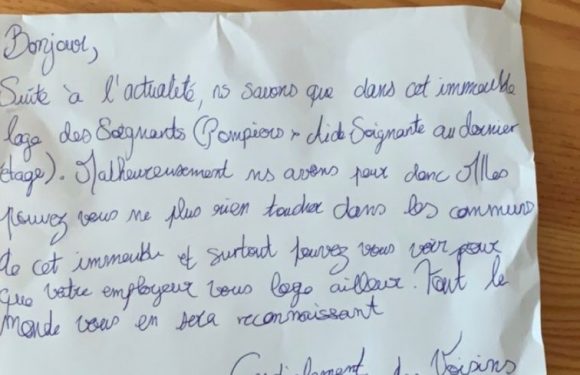 Bonjour,
Suite à l'actualité, ns savons que dans cet immeuble
loge des Soignants (Pompiers + Aide Soignante au dernier
étage). Malheureusement ns avons peur donc Mlles
pouvez vous ne plus rien toucher dans les communs
de cet immeuble et surtout pouvez vous voir pour
que votre employeur vous loge ailleur. Tout le
Monde vous en sera reconnaissant
Cordialement des Voisins